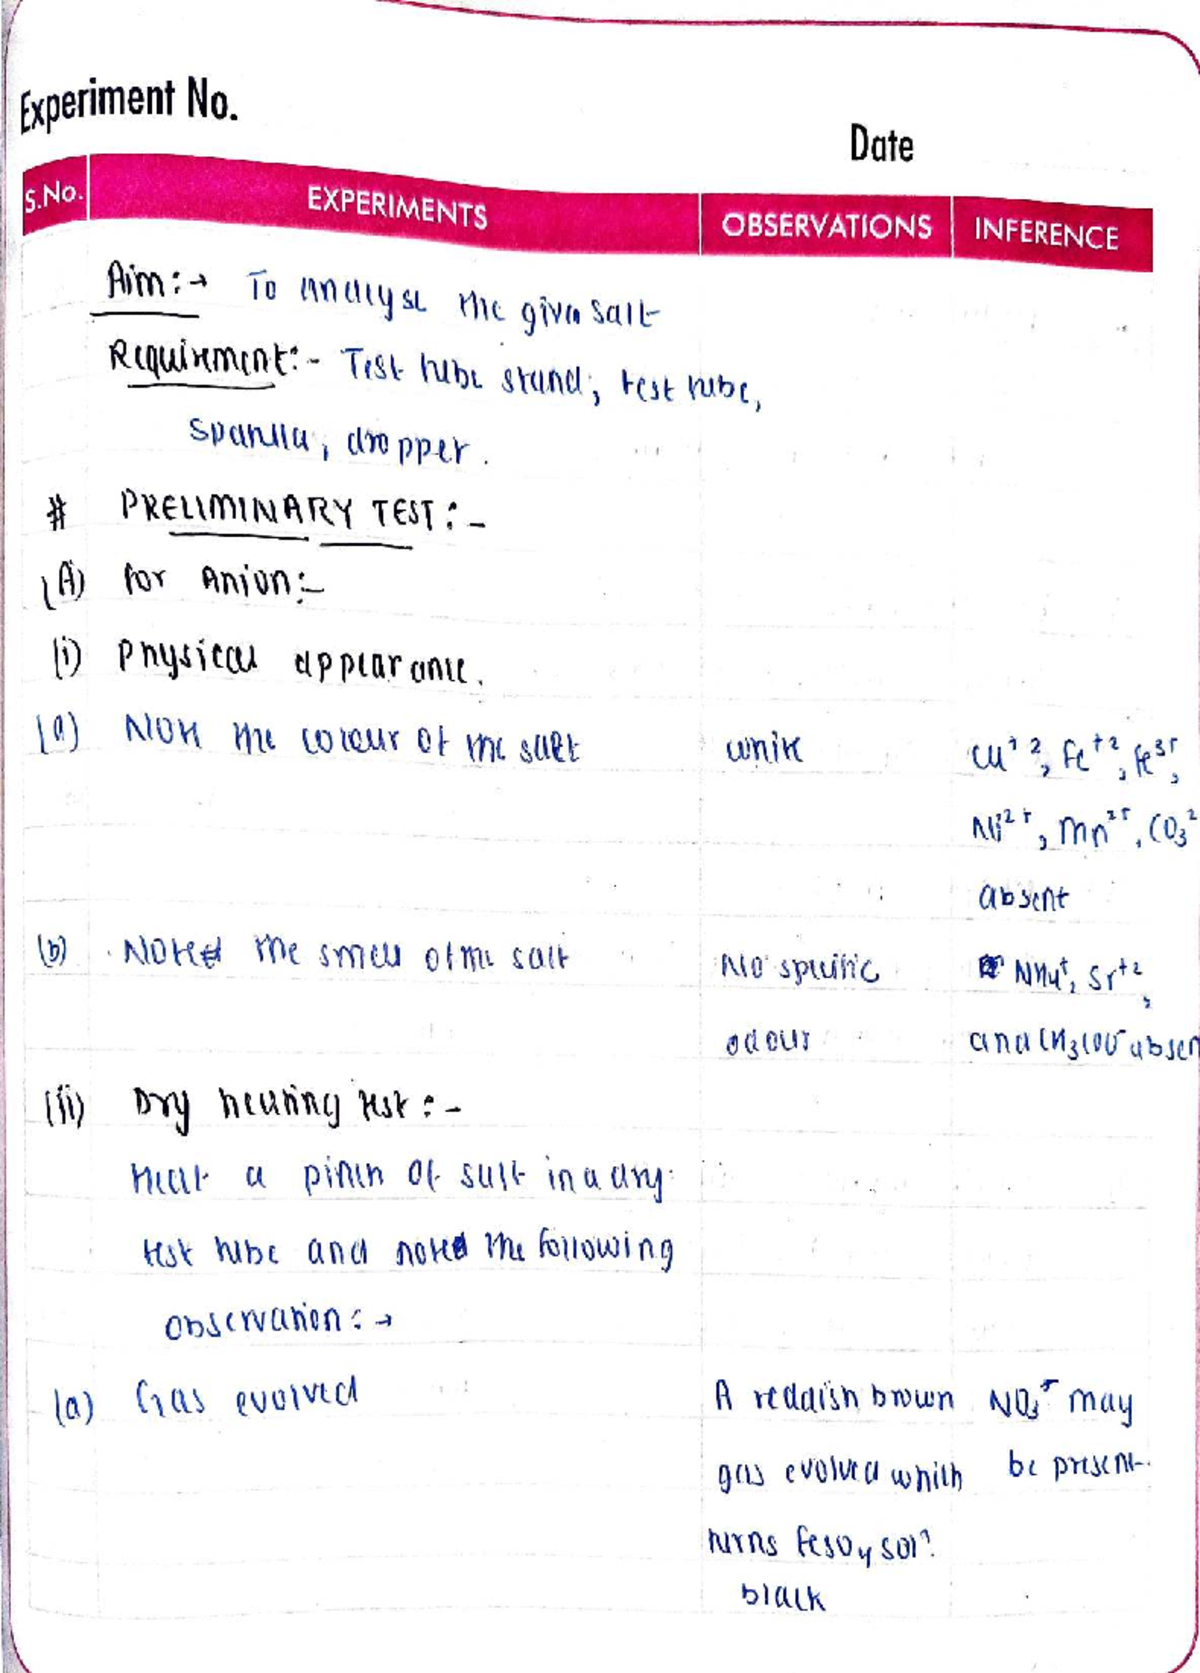 Experiment No.
Date
S.No. EXPERIMENTS OBSERVATIONS INFERENCE
Aim:→ To analyse the given salt
Requirement:- Test tube stand, test tube,
spatula, dropper.
# PRELIMINARY TEST:-
(A) for Anion:-
(i) Physical appearance.
(a) Note the colour of the salt white Cu⁺², Fe⁺², Fe³⁺,
Ni²⁺, Mn²⁺, CO₃²
absent
(b) Noted the smell of the salt No specific NH₄⁺, Sr⁺²,
odour and CH₃COO⁻ absen
(ii) Dry heating test:-
Heat a pinch of salt in a dry
test tube and noted the following
observation:→
(a) Gas evolved A reddish brown NO₃⁻ may
gas evolved which be present.
turns FeSO₄ solⁿ.
black